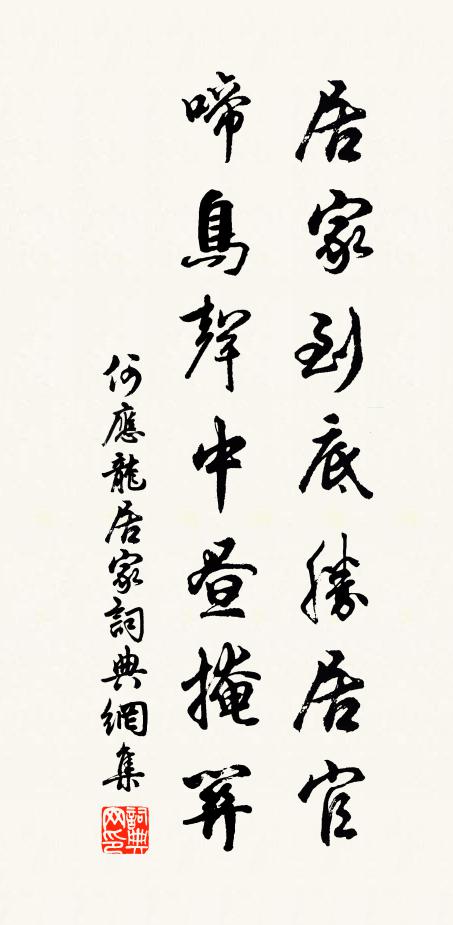 居家到底勝居官
啼鳥聲中晝掩關
何應龍居家詞典網集
詞典网印